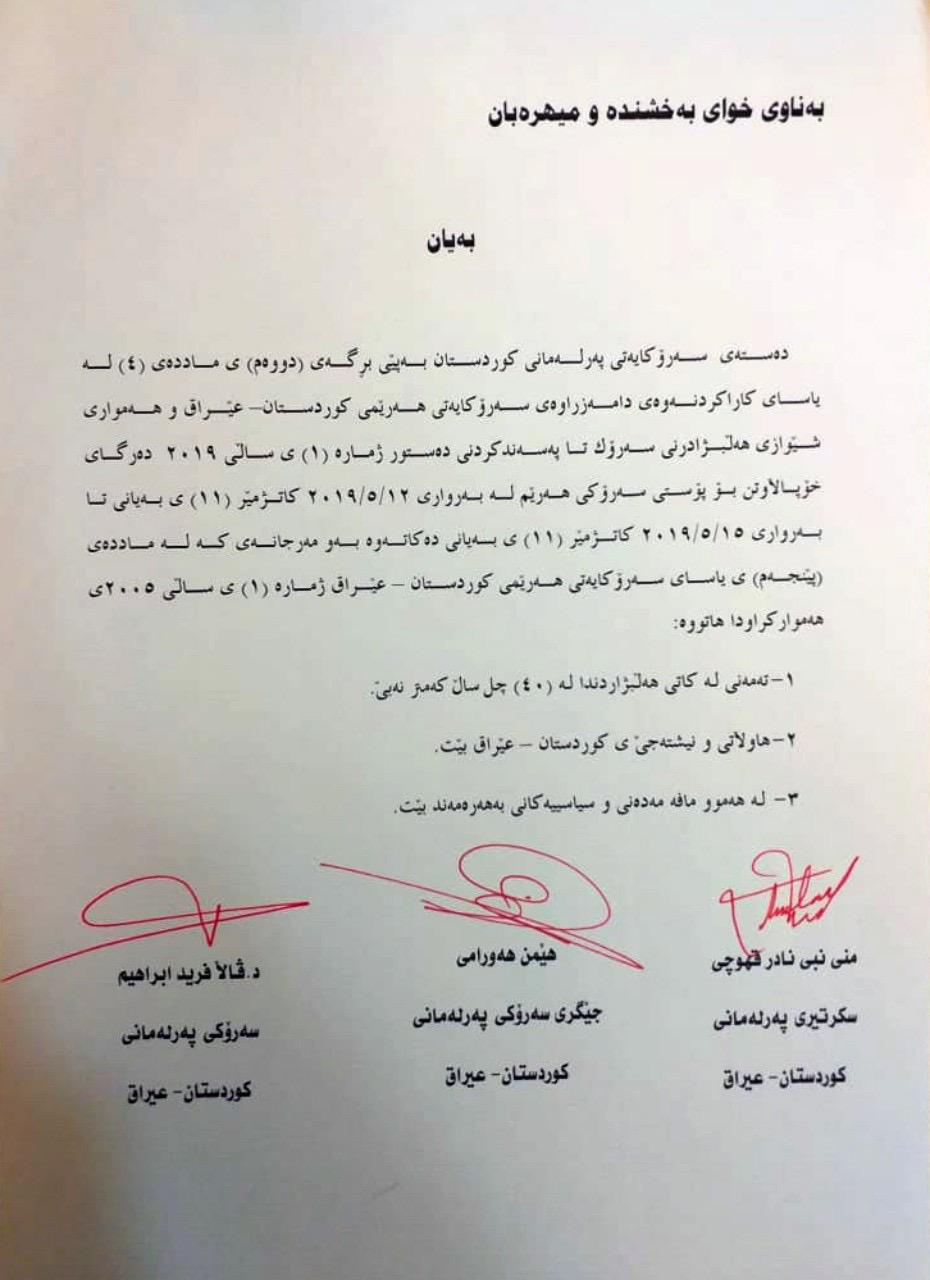 بەناوی خوای بەخشندە و میهرەبان
بەیان
دەستەی سەرۆکایەتی پەرلەمانی کوردستان بەپێی برگەی (دووەم) ی ماددەی (٤) لە
یاسای کاراکردنەوەی دامەزراوەی سەرۆکایەتی هەرێمی کوردستان– عێراق و هەمواری
شێوازی هەڵبژادرنی سەرۆك تا پەسەندکردنی دەستور ژمارە (١) ی ساڵی ٢٠١٩ دەرگای
خۆپاڵاوتن بۆ پۆستی سەرۆکی هەرێم لە بەرواری ٢٠١٩/٥/١٢ کاتژمێر (١١) ی بەیانی تا
بەرواری ٢٠١٩/٥/١٥ کاتژمێر (١١) ی بەیانی دەکاتەوە بەو مەرجانەی کە لە ماددەی
(پێنجەم) ی یاسای سەرۆکایەتی هەرێمی کوردستان – عێراق ژمارە (١) ی ساڵی ٢٠٠٥ی
هەموارکراودا هاتووە:
١– تەمەنی لە کاتی هەڵبژاردندا لە (٤٠) چل ساڵ کەمتر نەبێ.
٢– هاوڵاتی و نیشتەجێ ی کوردستان – عێراق بێت.
٣– لە هەموو مافە مەدەنی و سیاسییەکانی بەهەرەمەند بێت.
منی نبی نادر قهوچی
سکرتیری پەرلەمانی
کوردستان– عیراق
هێمن هەورامی
جێگری سەرۆکی پەرلەمانی
کوردستان– عیراق
د.ڤالأ فرید ابراهیم
سەرۆکی پەرلەمانی
کوردستان– عیراق